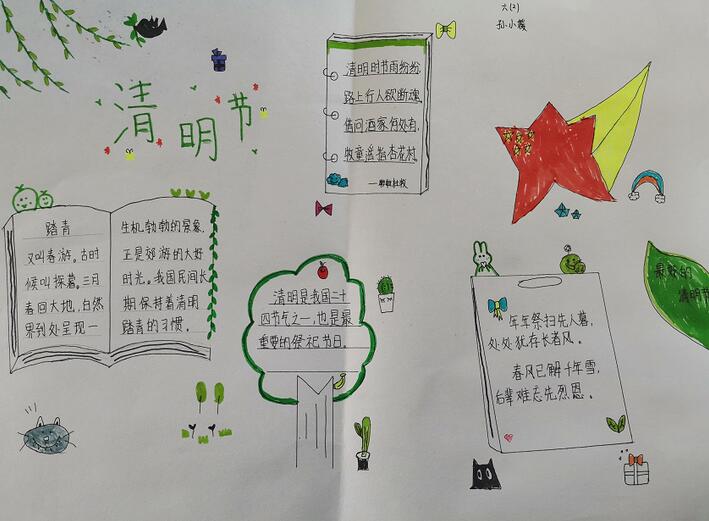 六(2)
清明节
清明时节雨纷纷
路上行人欲断魂
借问酒家何处有
牧童遥指杏花村
踏青
又叫春游。古时
候叫探墓。三月
春回大地,自然
界到处呈现一
生机勃勃的景象,
正是郊游的大好
时光。我国民间长
期保持着清明
踏青的习惯。
清明是我国二十
四节气之一,也是最
重要的祭祀节日。
年年祭扫先人墓,
处处犹存长者风。
春风已解千年雪,
后辈难忘先烈恩。
最好的
清明节